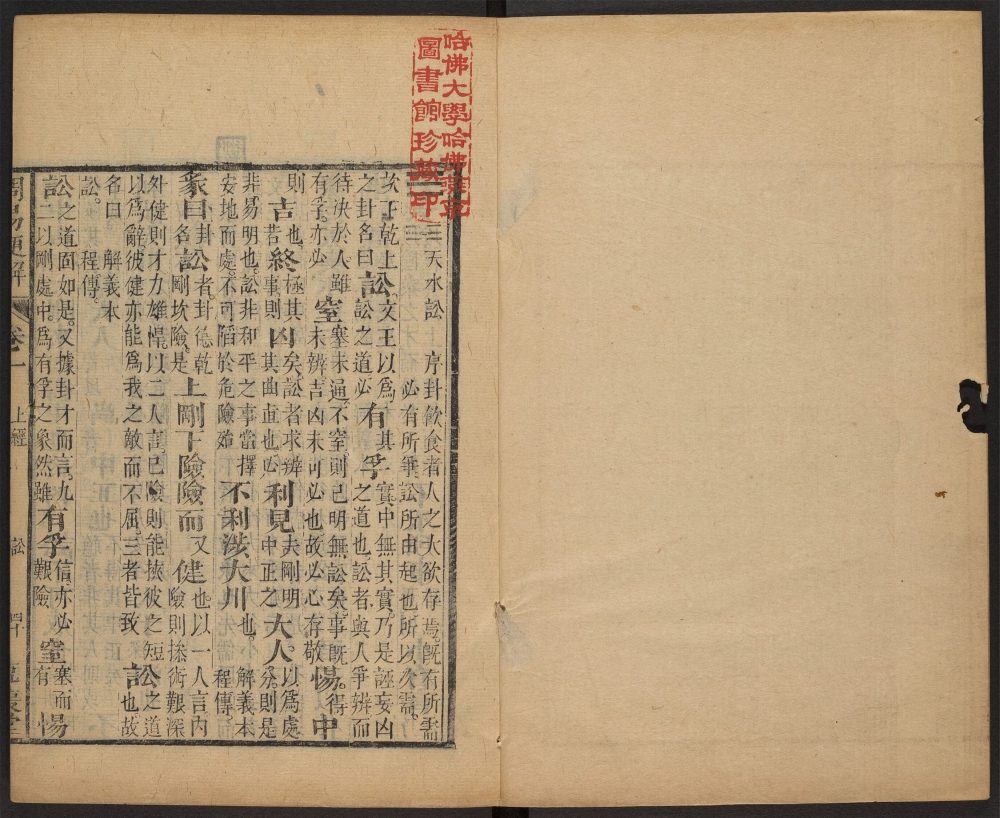 哈佛大學哈佛燕京
圖書館珍藏印
天水訟 序卦飲食者人之大欲存焉旣有所需
必有所爭訟所由起也所以次需
坎下乾上之卦名曰訟文王以爲訟之道必有孚其實中無其實乃是誣妄凶之道也訟者與人爭辨而
待決於人雖有孚亦必窒塞未通不窒則已明無訟矣事旣得未辨吉凶未可必也故必心存敬惕中
則吉也若終極其事則凶矣訟者求辨其曲直也必利見夫剛明中正之大人以爲處分則是
非易明也訟非和平之事當擇安地而處不可陷於危險故不利涉大川也 解義本程傳
彖曰卦名訟者卦德乾剛坎險是上剛下險險而又健也以一人言內險則操術艱深
外健則才力雄悍以二人言己險則能挾彼之短以爲辭彼健亦能爲我之敵而不屈三者皆致訟之道也故
名曰訟 解義本程傳
訟之道固如是又據卦才而言九二以剛處中爲有孚之象然雖有孚信亦必艱險窒塞而有惕
周易便解 卷一 上經 訟 四十